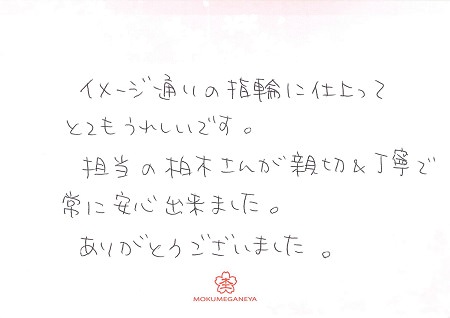 イメージ通りの指輪に仕上って
とてもうれしいです。
担当の柏木さんが親切&丁寧で
常に安心出来ました。
ありがとうございました。
MOKUMEGANEYA